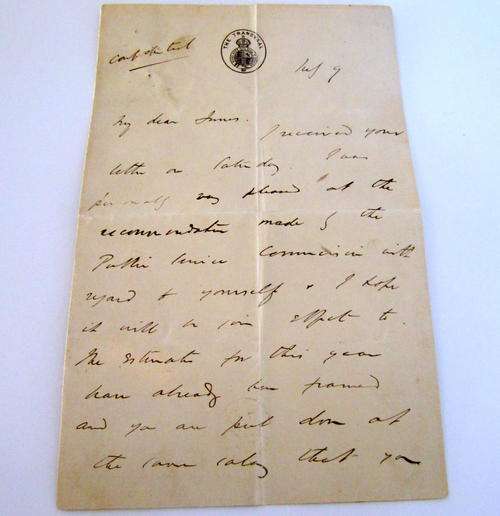 Confidential
THE TRANSVAAL
July 9
My dear Innes.
I received your
letter on Saturday. I was
personally very pleased at the
recommendation made by the
Public Service Commission with
regard to yourself & I hope
it will be given effect to.
The Estimates for this year
have already been framed
and you are put down at
the same salary that you